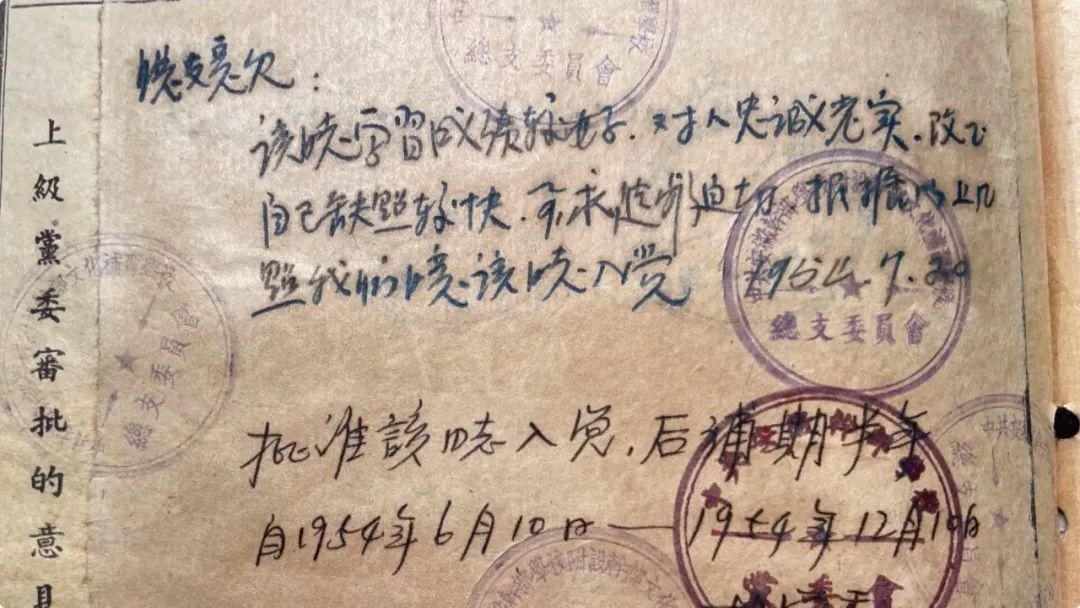 上級黨委審批的意見
总支意见:
该同志学習成績較好.对人忠诚老实.改正
自己缺點較快.要求進步迫切.根據以上几
點我們同意该同志入党 1954.7.20
總支委員會
批准該同志入党,后補期半年
自1954年6月10日——1954年12月10日
總支委員會
總支委員會
黨委會